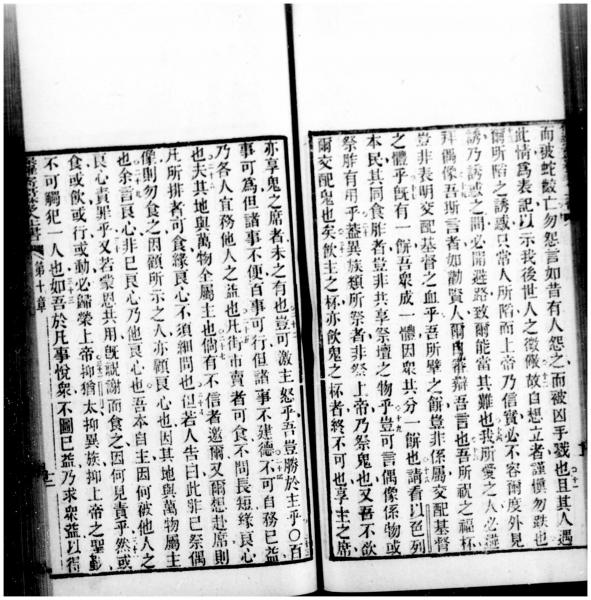 而被蛇滅亡勿怨言如昔有人怨之而被凶手戮也且其人遇
此情爲表記以示我後世人之儆故自想立者謹慎勿跌也
爾所陷之誘惑只常人所陷而上帝乃信實必不容爾度外見
誘乃誘惑之間必開避路致爾能當其難也我所愛之人必避
拜偶像吾斯言者如勸賢人爾審辯吾言也吾所祝之福杯
豈非表明交配基督之血乎吾所擘之餅豈非係屬交配基督
之體乎旣有一餅吾衆成一體因衆共分一餅也請看以色列
本民其同食胙者豈非共享祭壇之物乎豈可言偶像係物或
祭胙有用乎蓋異族類所祭者非祭上帝乃祭鬼也又吾不欲
爾交配鬼也矣飲主之杯亦飲鬼之杯者終不可也享主之席
亦享鬼之席者未之有也豈可激主怒乎吾豈勝於主乎〇百
事可爲但諸事不便百事可行但諸事不建德不可自務己益
乃各人宜務他人之益也凡街市賣者可食不問長短緣良心
也夫其地與萬物全屬主也倘有不信者邀爾又爾想赴席則
凡所排者可食緣良心不須細問也但若人告曰此非已祭偶
像則勿食之因顧所示之人亦顧良心也因其地與萬物屬主
也余言良心非己良心乃他良心也吾本自主因何被他人之
良心責罪乎又若蒙恩共用旣祝謝而食之因何見責乎然或
食或飲或行或動必歸榮上帝抑猶太抑異族抑上帝之聖
不可觸犯一人也如吾於凡事悅衆不圖己益乃求衆益以得
第十章
十二